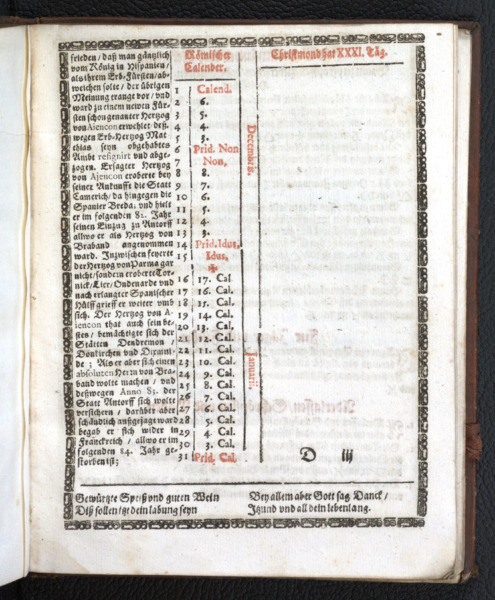 frieden / daß man gäntzlich
vom König in Hispania /
als ihrem Erb-Fürsten / ab-
weichen solte / der übrigen
Meinung trange vor / und
ward zu einem newen Für-
sten schon genanter Hertzog
von Alencon erwehlet deß-
wegen Erb-Hertzog Mat
thias seyn obgehabtes
Ambt resignirt und abge-
zogen. Ersagter Hertzog
von Ajencon eroberte bey
seiner Ankunfft die Statt
Camerich / da hingegen die
Spanier Breda, und hielt
er im folgenden 82. Jahr
seinen Einzug zu Antorff
allwo er als Hertzog von
Braband angenommen
ward. Inzwischen feyerte
der Hertzog von Parma gar
nicht / sondern eroberte Tor-
nick / Lier / Oudenarde und
nach erlangter Spanischer
Hülff grieff er weiter umb
sich. Der Hertzog von A-
lencon that auch sein be-
sten / bemächtigte sich der
Stätten Dendremon /
Dönkirchen und Dixmüi-
de ; Als er aber sich einen
absoluten Herrn von Bra-
band wolte machen / und
deßwegen Anno 83. der
Statt Antorff sich wolte
versichern / darüber aber
schändlich außgejagt ward
begab er sich wider in
Franckreich / allwo er im
folgenden 84. Jahr ge-
storben ist;
Römischer
Calender.
1 Calend.
2 6.
3 5.
4 4.
5 3.
6 Prid. Non
7 Non,
8 8.
9 7.
10 6.
11 5.
12 4.
13 3.
14 Prid. Idus,
15 Idus,
16 17. Cal
17 16. Cal.
18 15. Cal.
19 14. Cal.
20 13. Cal.
21 12. Cal.
22 11. Cal.
23 10. Cal.
24 9. Cal.
25 8. Cal.
26 7. Cal.
27 6. Cal.
28 5. Cal.
29 4. Cal.
30 3. Cal.
31 Prid. Cal.
Decembris.
Januarii.
Christmond hat XXXI. Täg.
D iij
Gewürtzte Speiß und gutem Wein
Diß sollen itz dein labung seyn
Bey allem aber Gott sag Danck /
Itzund und all dein lebenlang.